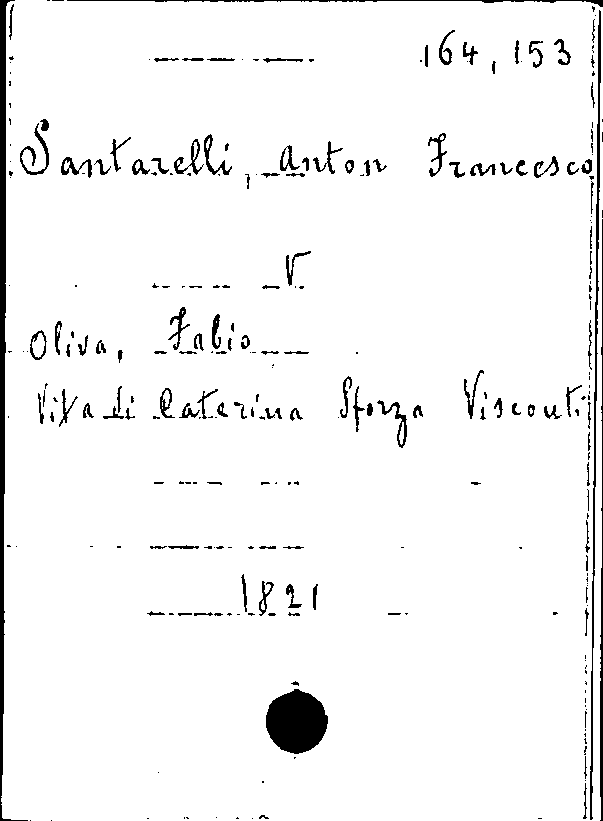 164, 153
Santarelli, Anton Francesco
V
Oliva, Fabio
Vita di Caterina Sforza Visconti
1821